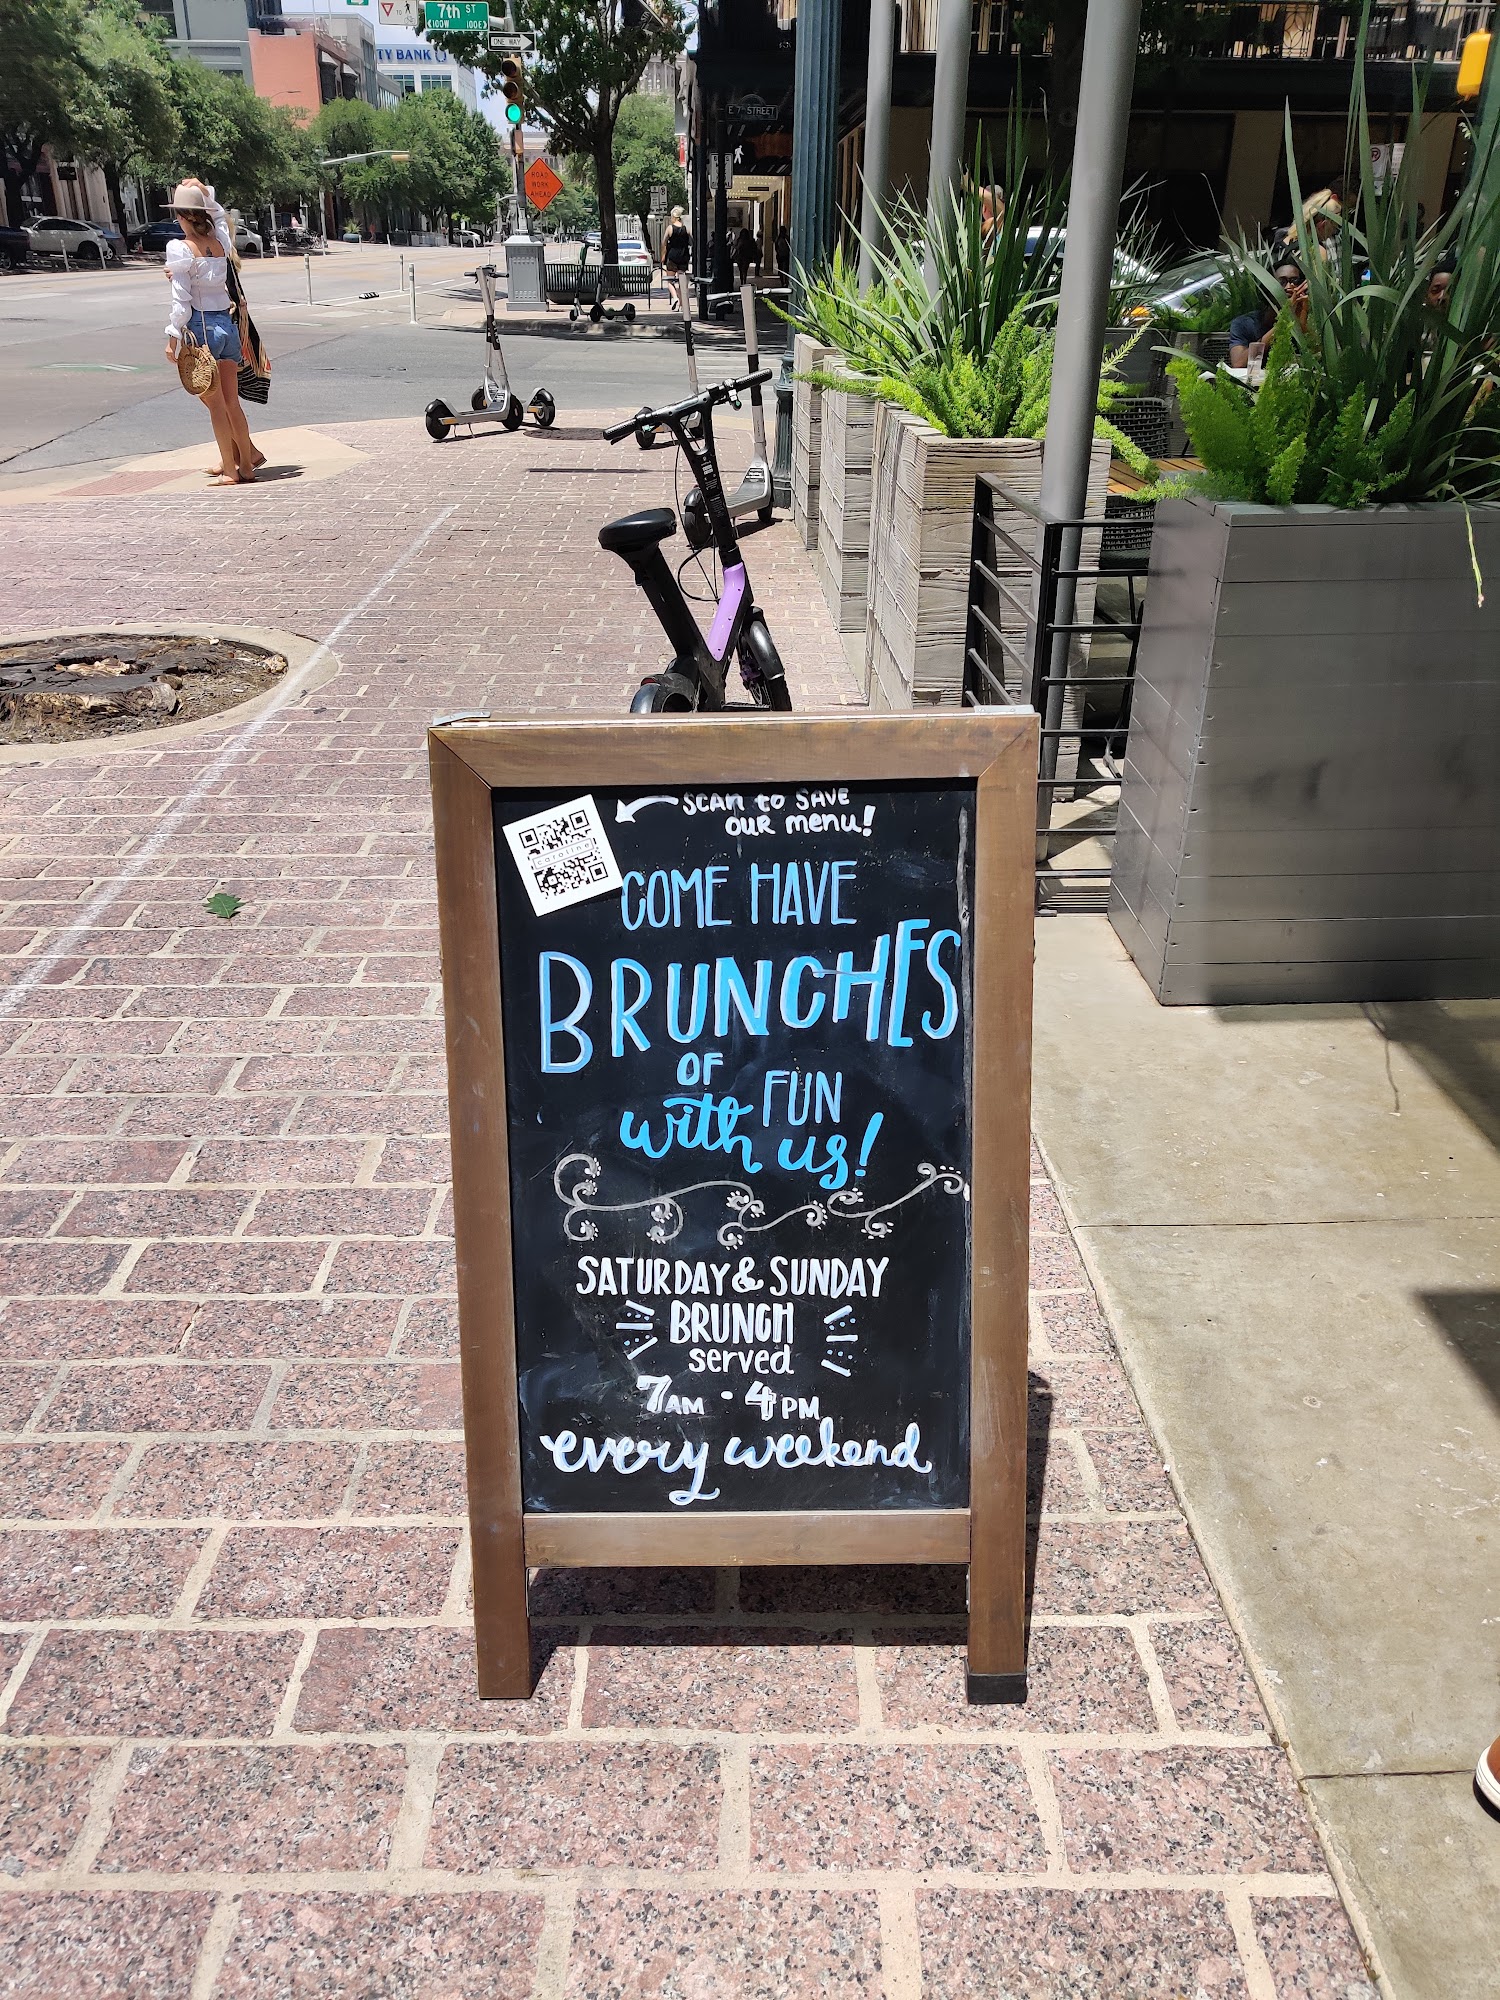 7th ST
100W 100E
ONE WAY
TY BANK
E 7th STREET
ROAD
WORK
AHEAD
SCAN to SAVE
OUR menu!
caroline
COME HAVE
BRUNCHES
OF FUN
with us!
SATURDAY & SUNDAY
BRUNCH
served
7AM - 4PM
every weekend